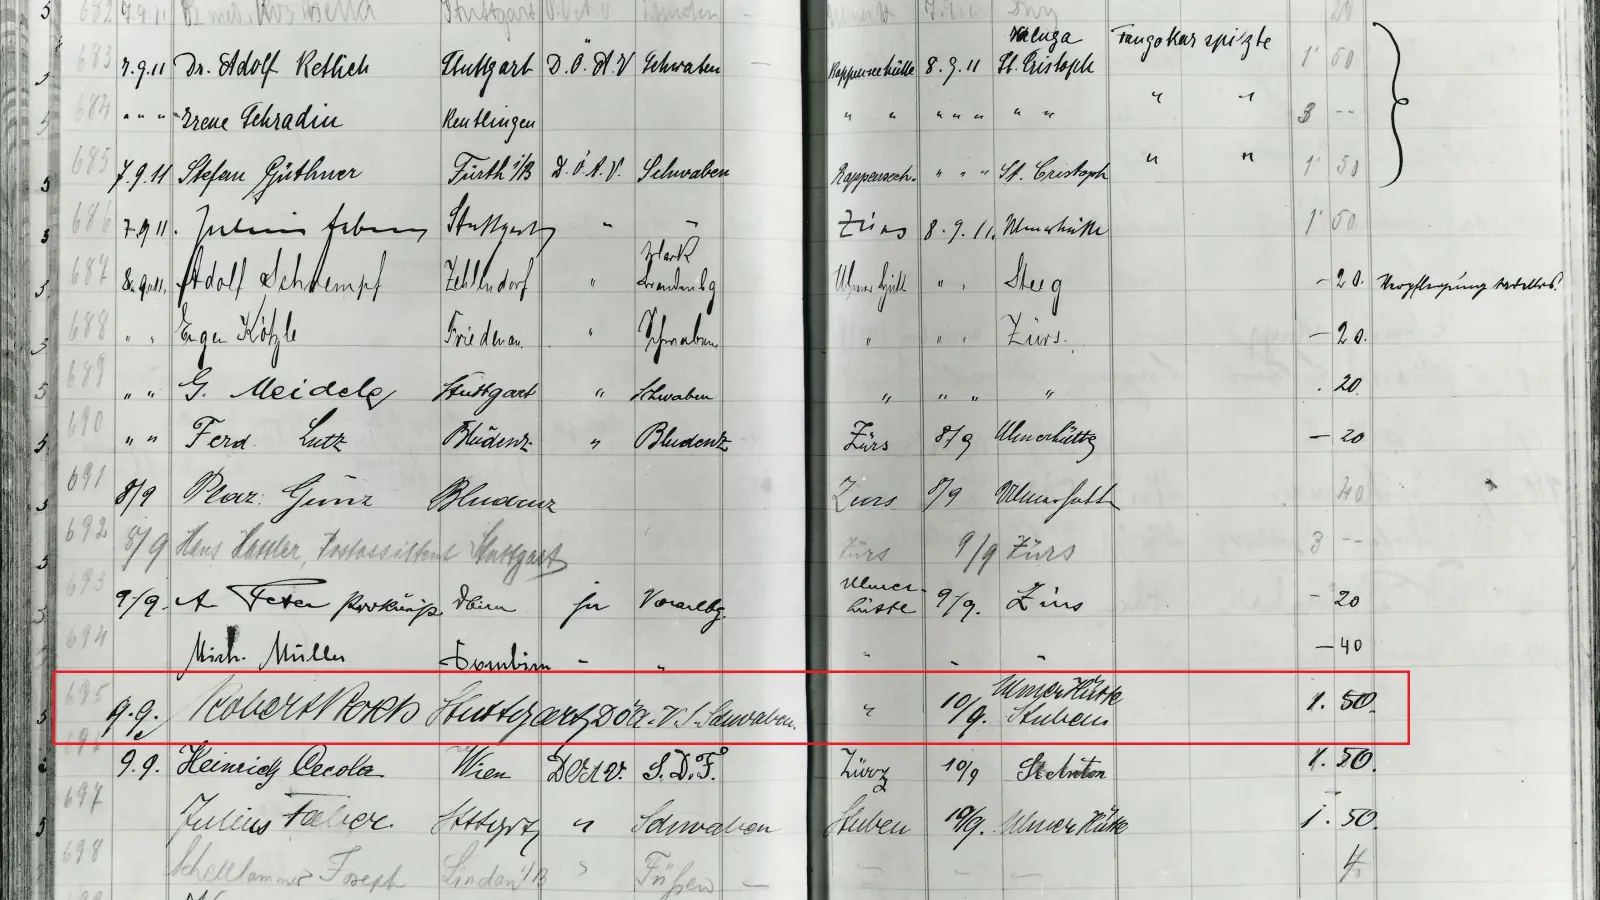 682 7.9.11 Dr. med. Stuttgart D.Ö.A.V. Schwaben 7.9.11 20
683 7.9.11 Dr. Adolf Rettich Stuttgart D.Ö.A.V Schwaben — Rappenseehütte 8.9.11 St. Cristoph 1 50
684 " " " Irene Schradin Reutlingen " " " " " " " " " 3 --
685 7.9.11 Stefan Güthner Fürth i/B D.Ö.A.V. Schwaben Rappenseeh. " " " St. Cristoph " " 1 50
686 7.9.11. Julius Stuttgart " " Zürs 8.9.11. Ulmerhütte 1 50
687 8.9.11. Adolf Schrempf Zehlendorf " Mark Brandenbg Ulmer Hütte " " Steeg - 20. Verpflegung
688 " " Eugen Kötzle Friedenau " Schwaben " " " Zürs. - 20.
689 " " G. Meidele Stuttgart " Schwaben " " " " . 20
690 " " Ferd. Lutz Bludenz " Bludenz Zürs 8/9 Ulmerhütte - 20
691 8/9 Plaz. Günz Bludenz Zürs 8/9 Ulmerhütte 40
692 8/9 Hans Hassler, Postassistent Stuttgart Zürs 9/9 Zürs 3 --
693 9/9. A Feter Vorarlbg. Ulmerhütte 9/9. Zürs - 20
694 Mich. Müller Dornbirn " " " " " - 40
695 9.9. Robert Stuttgart D.Ö.A.V. S. Schwaben. " 10/9. Ulmer Hütte Stuben 1. 50.
696 9.9. Heinrich Wien DÖAV. S.D.F. 10/9 1. 50.
697 Julius Faber. Sttgrt " Schwaben Stuben 10/9. Ulmer Hütte 1. 50.
698 Schellhammer Joseph Lindau i/B " Füssen — — — — 4